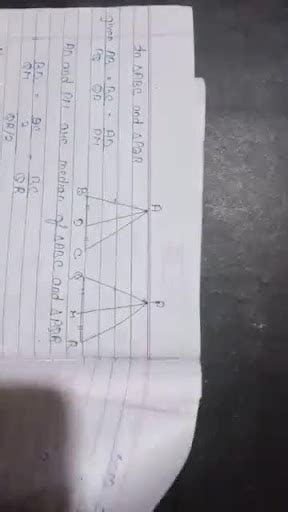 In △ABC and △PQR
given AB/PQ = BC/QR = AD/PM
A P
B D C Q M R
AD and PM are median of △ABC and △PQR
BD/QM = BC/2 / QR/2 = BC/QR